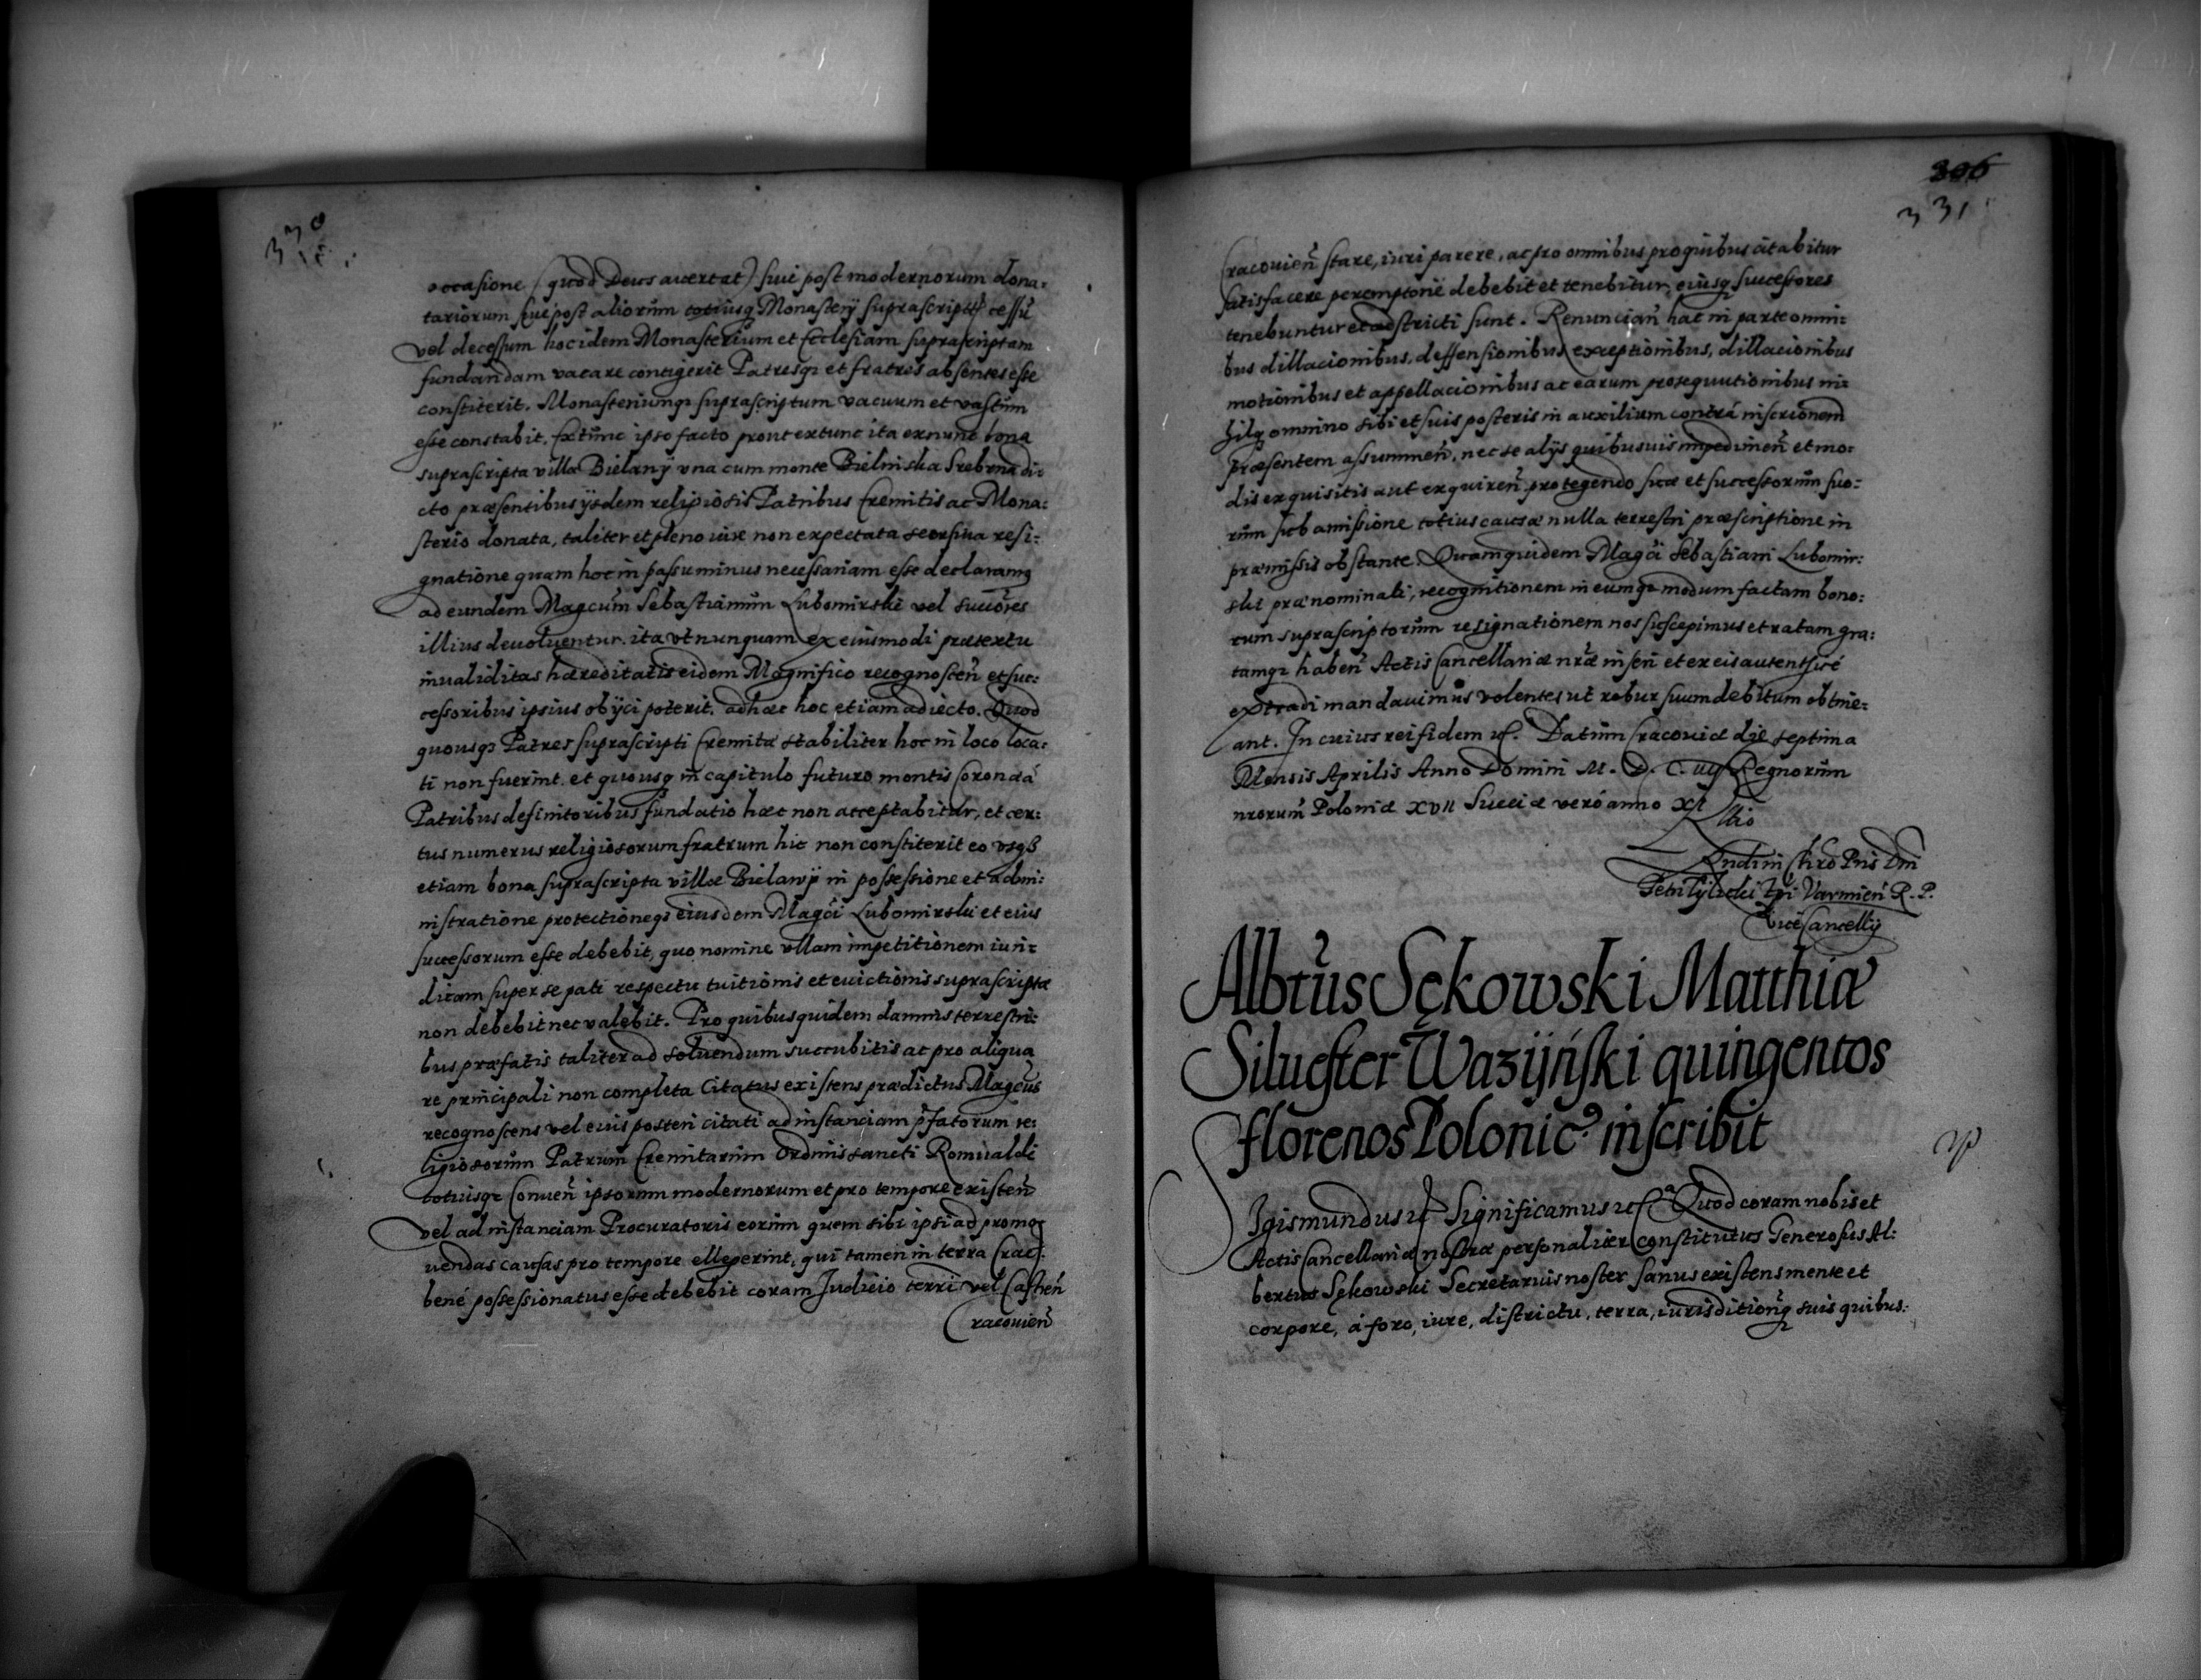 330
occasione (quod Deus auertat) siue post modernorum dona:
tariorum siue post aliorum totiusq Monasterÿ suprascripti cessu
vel decessum hoc idem Monasterium et Ecclesiam suprascriptam
fundandam vacare contigerit Patresqz et fratres absentes esse
constiterit. Monasteriumqz suprascriptum vacuum et vastum
esse constabit, Extunc ipso facto prout extunc ita exnunc bona
suprascripta villa Bielanÿ vna cum monte Bielniska Srebrna di:
cto præsentibus ÿsdem religiosis Patribus Eremitis ac Mona:
sterio donata, taliter et pleno iure non expectata seorsiua resi:
gnatione quam hoc in passu minus necessariam esse declaramus
ad eundem Magcum Sebastianum Lubomirski vel succores
illius deuoluentur. ita vt nunquam ex eiusmodi prætextu
inualiditas hæreditatis eidem Magnifico recognoscen et suc:
cessoribus ipsius obÿci poterit. ad hæc hoc etiam adiecto. Quod
quousqz Patres suprascripti Eremitæ stabiliter hoc in loco loca:
ti non fuerint. et quousq in capitulo futuro montis Coronæ
Patribus definitoribus fundatio hæc non acceptabitur, et cer:
tus numerus religiosorum fratrum hic non constiterit eo vsqz
etiam bona suprascripta villæ Bielanÿ in possessione et admi:
nistratione protectioneqz eiusdem Magci Lubomirski et eius
successorum esse debebit, quo nomine vllam impetitionem iuri:
dicam super se pati respectu tuitionis et euictionis suprascriptæ
non debebit nec valebit. Pro quibus quidem damnis terrestri:
bus præfatis taliter ad soluendum succubitis ac pro aliqua
re principali non completa Citatus existens prædictus Magcus
recognoscens vel eius posteri citati ad instanciam pfatorum re:
ligiosorum Patrum Eremitarum Ordinis sancti Romualdi
totiusqz Conuen ipsorum modernorum et pro tempore existen
vel ad instanciam Procuratoris eorum quem sibi ipsi ad promo:
uendas causas pro tempore ellegerint, qui tamen in terra Crac:
bené possessionatus esse debebit coram Judicio terri vel Castren
Cracouien
306
331
Cracouien stare, iuri parere, ac pro omnibus pro quibus citabitur
satisfacere peremptorie debebit et tenebitur, eiusq successores
tenebuntur et adstricti sunt. Renuncian hac in parte omni:
bus dillacionibus, deffensionibus exceptionibus, dillacionibus
motionibus et appellacionibus ac earum prosequutionibus ni:
hilq omnino sibi et suis posteris in auxilium contrá inscrionem
præsentem assummen, nec se alÿs quibusuis impedimen et mo:
dis exquisitis aut exquiren protegendo suæ et successorum suo:
rum sub amissione totius causæ nulla terrestri præscriptione in
præmissis obstante. Quamquidem Magci Sebastiani Lubomir:
ski prænominati, recognitionem in eumqz modum factam bono:
rum suprascriptorum resignationem nos suscepimus et ratam gra:
tamqz haben Actis Cancellariæ nræ inseri et ex eis autentice
extradi mandauimus volentes ut robur suum debitum obtine:
ant. In cuius rei fidem etc. Datum Cracouiæ die septima
Mensis Aprilis Anno Domini M. D. C. iiij Regnorum
nrorum Poloniæ XVII Sueciæ veró anno XI
Petri Tylicki Epi Varmien R. P.
Vice Cancellÿ
Albtus Sękowski Matthiæ
Siluester Wazijński quingentos
florenos Polonic. inscribit
Sigismundus etc Significamus etc. Quod coram nobis et
Actis Cancellariæ nostræ personaliter constitutus Generosus Al:
bertus Sękowski Secretarius noster sanus existens mente et
corpore, á foro, iure, districtu, terra, iurisditionq suis quibus: